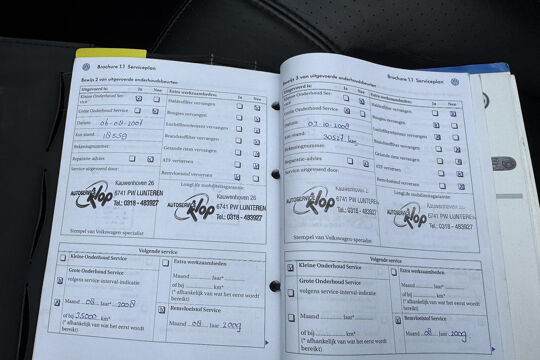 Brochure 1.1 Serviceplan
Bewijs 2 van uitgevoerde onderhoudsbeurten
Uitgevoerd is: Ja Nee
Kleine Onderhoud Ser-
vice
Grote Onderhoud Service
Datum: 06-08-2007
Km-stand: 18558
Rekeningnummer:
Reparatie-advies
Service uitgevoerd door:
Extra werkzaamheden: Ja Nee
Pollenfilter vervangen
Bougies vervangen
Luchtfilterelement vervangen
Brandstoffilter vervangen
Getande riem vervangen
ATF verversen
Remvloeistof verversen
Longlife mobiliteitsgarantie:
AUTOSERVICE Klop
Kauwenhoven 26
6741 PW LUNTEREN
Tel.: 0318 - 483927
AUTOSERVICE Klop
Kauwenhoven 26
6741 PW LUNTEREN
Tel.: 0318 - 483927
Stempel van Volkswagen-specialist
Volgende service
Kleine Onderhoud Service
Grote Onderhoud Service
volgens service-interval-indicatie
Maand 08 Jaar 2008
of bij 35000 km*
(* afhankelijk van wat het eerst wordt
bereikt)
Extra werkzaamheden
Maand Jaar*
of bij km*
(* afhankelijk van wat het eerst wordt
bereikt)
Remvloeistof Service
Maand 08 Jaar 2009
Brochure 1.1 Serviceplan
Bewijs 3 van uitgevoerde onderhoudsbeurten
Uitgevoerd is: Ja Nee
Kleine Onderhoud Ser-
vice
Grote Onderhoud Service
Datum: 07-10-2008
Km-stand: 30527 km
Rekeningnummer:
Reparatie-advies
Service uitgevoerd door:
Extra werkzaamheden: Ja Nee
Pollenfilter vervangen
Bougies vervangen
Luchtfilterelement vervangen
Brandstoffilter vervangen
Getande riem vervangen
ATF verversen
Remvloeistof verversen
Longlife mobiliteitsgarantie:
AUTOSERVICE Klop
Kauwenhoven 26
6741 PW LUNTEREN
Tel.: 0318 - 483927
AUTOSERVICE Klop
Kauwenhoven 26
6741 PW LUNTEREN
Tel.: 0318 - 483927
Stempel van Volkswagen-specialist
Volgende service
Kleine Onderhoud Service
Grote Onderhoud Service
volgens service-interval-indicatie
Maand Jaar*
of bij km*
(* afhankelijk van wat het eerst wordt
bereikt)
Extra werkzaamheden
Maand Jaar*
of bij km*
(* afhankelijk van wat het eerst wordt
bereikt)
Remvloeistof Service
Maand 08 Jaar 2009